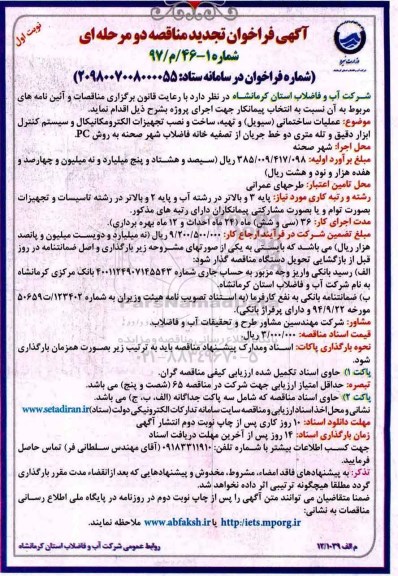 نوبت اول
آگهی فراخوان تجدید مناقصه دو مرحله ای
شماره ۱-۴۶/م/۹۷
(شماره فراخوان در سامانه ستاد: ۲۰۹۸۰۰۷۰۰۸۰۰۰۰۵۵)
شرکت آب و فاضلاب استان کرمانشاه در نظر دارد با رعایت قانون برگزاری مناقصات و آئین نامه های
مربوط به آن نسبت به انتخاب پیمانکار جهت اجرای پروژه بشرح ذیل اقدام نماید.
موضوع: عملیات ساختمانی (سیویل) و تهیه، ساخت و نصب تجهیزات الکترومکانیکال و سیستم کنترل
ابزار دقیق و تله متری دو خط جریان از تصفیه خانه فاضلاب شهر صحنه به روش PC.
محل اجرا: شهر صحنه
مبلغ برآورد اولیه: ۳۸۵/۰۰۹/۴۱۷/۰۹۸ ریال (سیصد و هشتاد و پنج میلیارد و نه میلیون و چهارصد و
هفده هزار و نود و هشت ریال)
محل تامین اعتبار: طرحهای عمرانی
رشته و رتبه کاری مورد نیاز: پایه ۳ و بالاتر در رشته آب و پایه ۲ و بالاتر در رشته تاسیسات و تجهیزات
بصورت توام و یا بصورت مشارکتی پیمانکاران دارای رتبه های مذکور.
مدت اجرای کار: ۳۶ (سی و شش) ماه (۲۴ ماه احداث و ۱۲ ماه بهره برداری).
مبلغ تضمین شرکت در فرآیند ارجاع کار: ۹/۲۰۰/۵۰۰/۰۰۰ ریال (نه میلیارد و دویست میلیون و پانصد
هزار ریال) می باشد که بایستی به یکی از صورتهای مشروحه زیر بارگذاری و اصل ضمانتنامه در روز
قبل از بازگشایی تحویل دستگاه مناقصه گذار شود:
الف) رسید بانکی واریز وجه مزبور به حساب جاری شماره ۴۰۰۱۱۲۴۹۰۷۱۴۵۵۴۳ بانک مرکزی کرمانشاه
به نام شرکت آب و فاضلاب استان کرمانشاه.
ب) ضمانتنامه بانکی به نفع کارفرما (به استناد تصویب نامه هیئت وزیران به شماره ۱۲۳۴۰۲/ت۵۰۶۵۹
مورخه ۹۴/۹/۲۲ و دارای پرفراژ بانکی).
مشاور: شرکت مهندسین مشاور طرح و تحقیقات آب و فاضلاب.
قیمت اسناد مناقصه: ۲/۰۰۰/۰۰۰ ریال.
نحوه بارگذاری پاکات: اسناد ومدارک پیشنهاد مناقصه باید به ترتیب زیر بصورت همزمان بارگذاری
شود.
پاکت ۱) حاوی اسناد تکمیل شده ارزیابی کیفی مناقصه گران.
تبصره: حداقل امتیاز ارزیابی جهت شرکت در مناقصه ۶۵ (شصت و پنج) می باشد.
پاکت ۲) حاوی اسناد مناقصه که شامل سه پاکت جداگانه (الف، ب، ج) می باشد.
نشانی و محل اخذ اسناد ارزیابی و مناقصه سایت سامانه تدارکات الکترونیکی دولت (ستاد) www.setadiran.ir
مهلت دانلود اسناد: ۱۰ روز کاری پس از چاپ نوبت دوم انتشار آگهی
زمان بارگذاری اسناد: ۱۴ روز پس از آخرین مهلت دریافت اسناد
جهت کسب اطلاعات بیشتر با شماره تلفن: ۰۹۱۸۳۳۱۱۹۱۰ (آقای مهندس سلطانی فر) تماس حاصل
فرمایید.
تذکر: به پیشنهادهای فاقد امضاء، مشروط، مخدوش و پیشنهادهایی که بعد ازانقضاء مدت مقرر بارگذاری
گردد مطلقا هیچگونه ترتیبی اثر داده نخواهد شد.
ضمنا متقاضیان می توانند متن آگهی را پس از چاپ نوبت دوم در روزنامه در پایگاه ملی اطلاع رسانی
مناقصات به نشانی:
http://iets.mporg.ir یا www.abfaksh.ir ملاحظه نمایند.
م الف ۱۲/۱۰۳۹
روابط عمومی شرکت آب و فاضلاب استان کرمانشاه